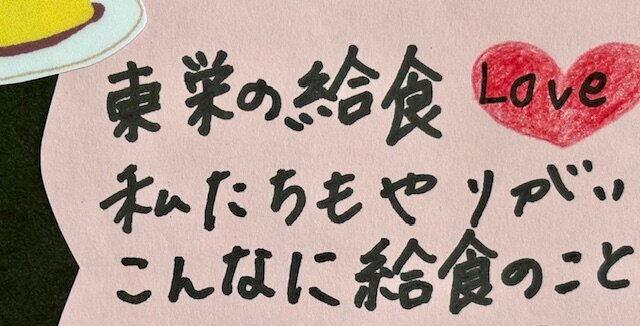 東栄の給食 Love
私たちもやりがい
こんなに給食のこと